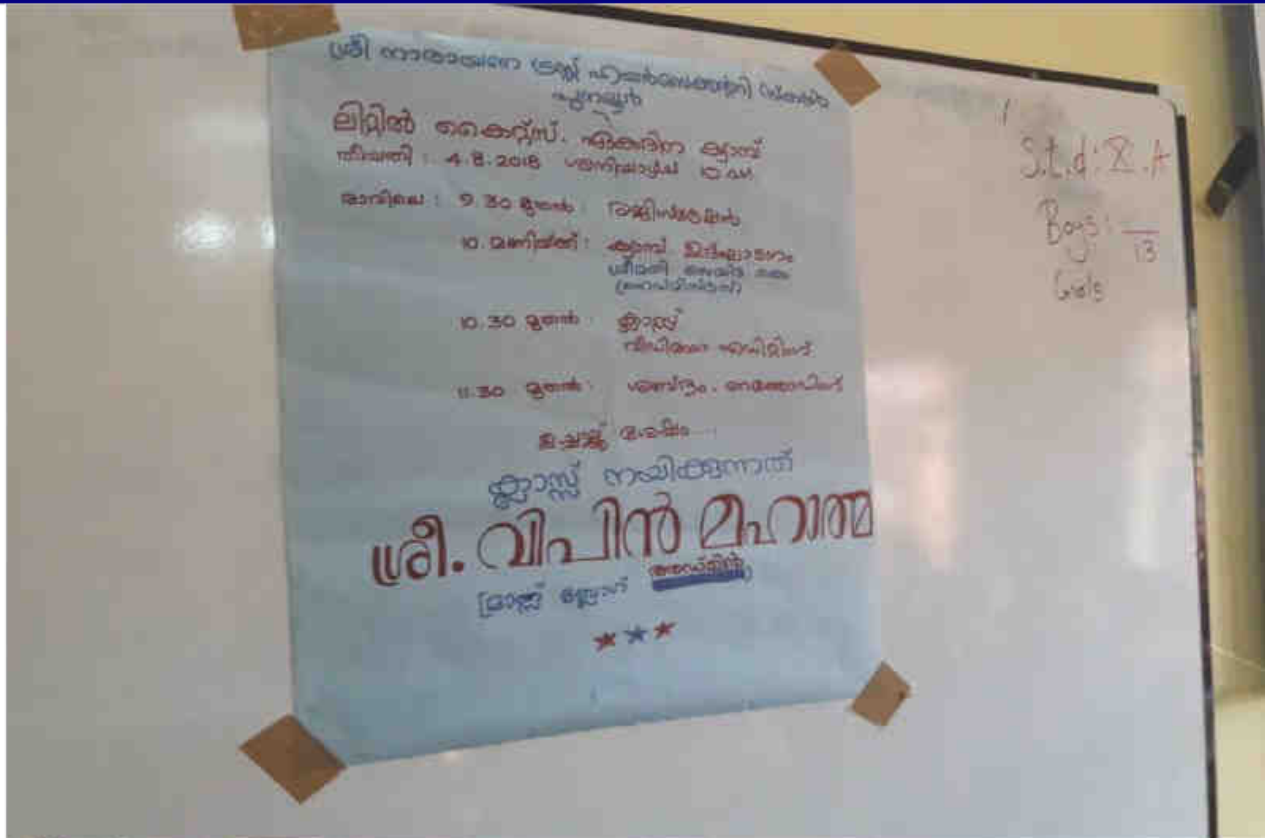 ശ്രീ നാരായണ ട്രസ്റ്റ് ഹയർസെക്കന്ററി സ്കൂൾ
പുനലൂർ
ലിറ്റിൽ കൈറ്റ്സ്. ഏകദിന ക്യാമ്പ്
തീയതി : 4.8.2018 ശനിയാഴ്ച 10 am
രാവിലെ : 9.30 മുതൽ : രജിസ്ട്രേഷൻ
10. മണിയ്ക്ക് : ക്യാമ്പ് ഉദ്ഘാടനം
ശ്രീമതി
(ഹെഡ്മിസ്ട്രസ്)
10.30 മുതൽ : ക്ലാസ്സ്
വീഡിയോ എഡിറ്റിംഗ്
11.30 മുതൽ : ശബ്ദം. റെക്കോഡിംഗ്
ഉച്ചയ്ക്ക് ശേഷം....
ക്ലാസ്സ് നയിക്കുന്നത്
ശ്രീ. വിപിൻ മഹാത്മ
[മാത്സ് ബ്ലോഗ് അഡ്മിൻ]
S.t.d : X. A
Boys : __
13
Girls